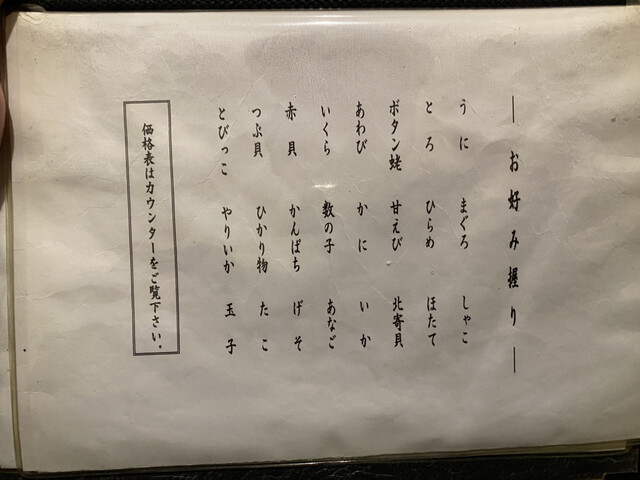 ― お好み握り ―
うに まぐろ しゃこ
とろ ひらめ ほたて
ボタン蛯 甘えび 北寄貝
あわび かに いか
いくら 数の子 あなご
赤貝 かんぱち げそ
つぶ貝 ひかり物 たこ
とびっこ やりいか 玉子
価格表はカウンターをご覧下さい。